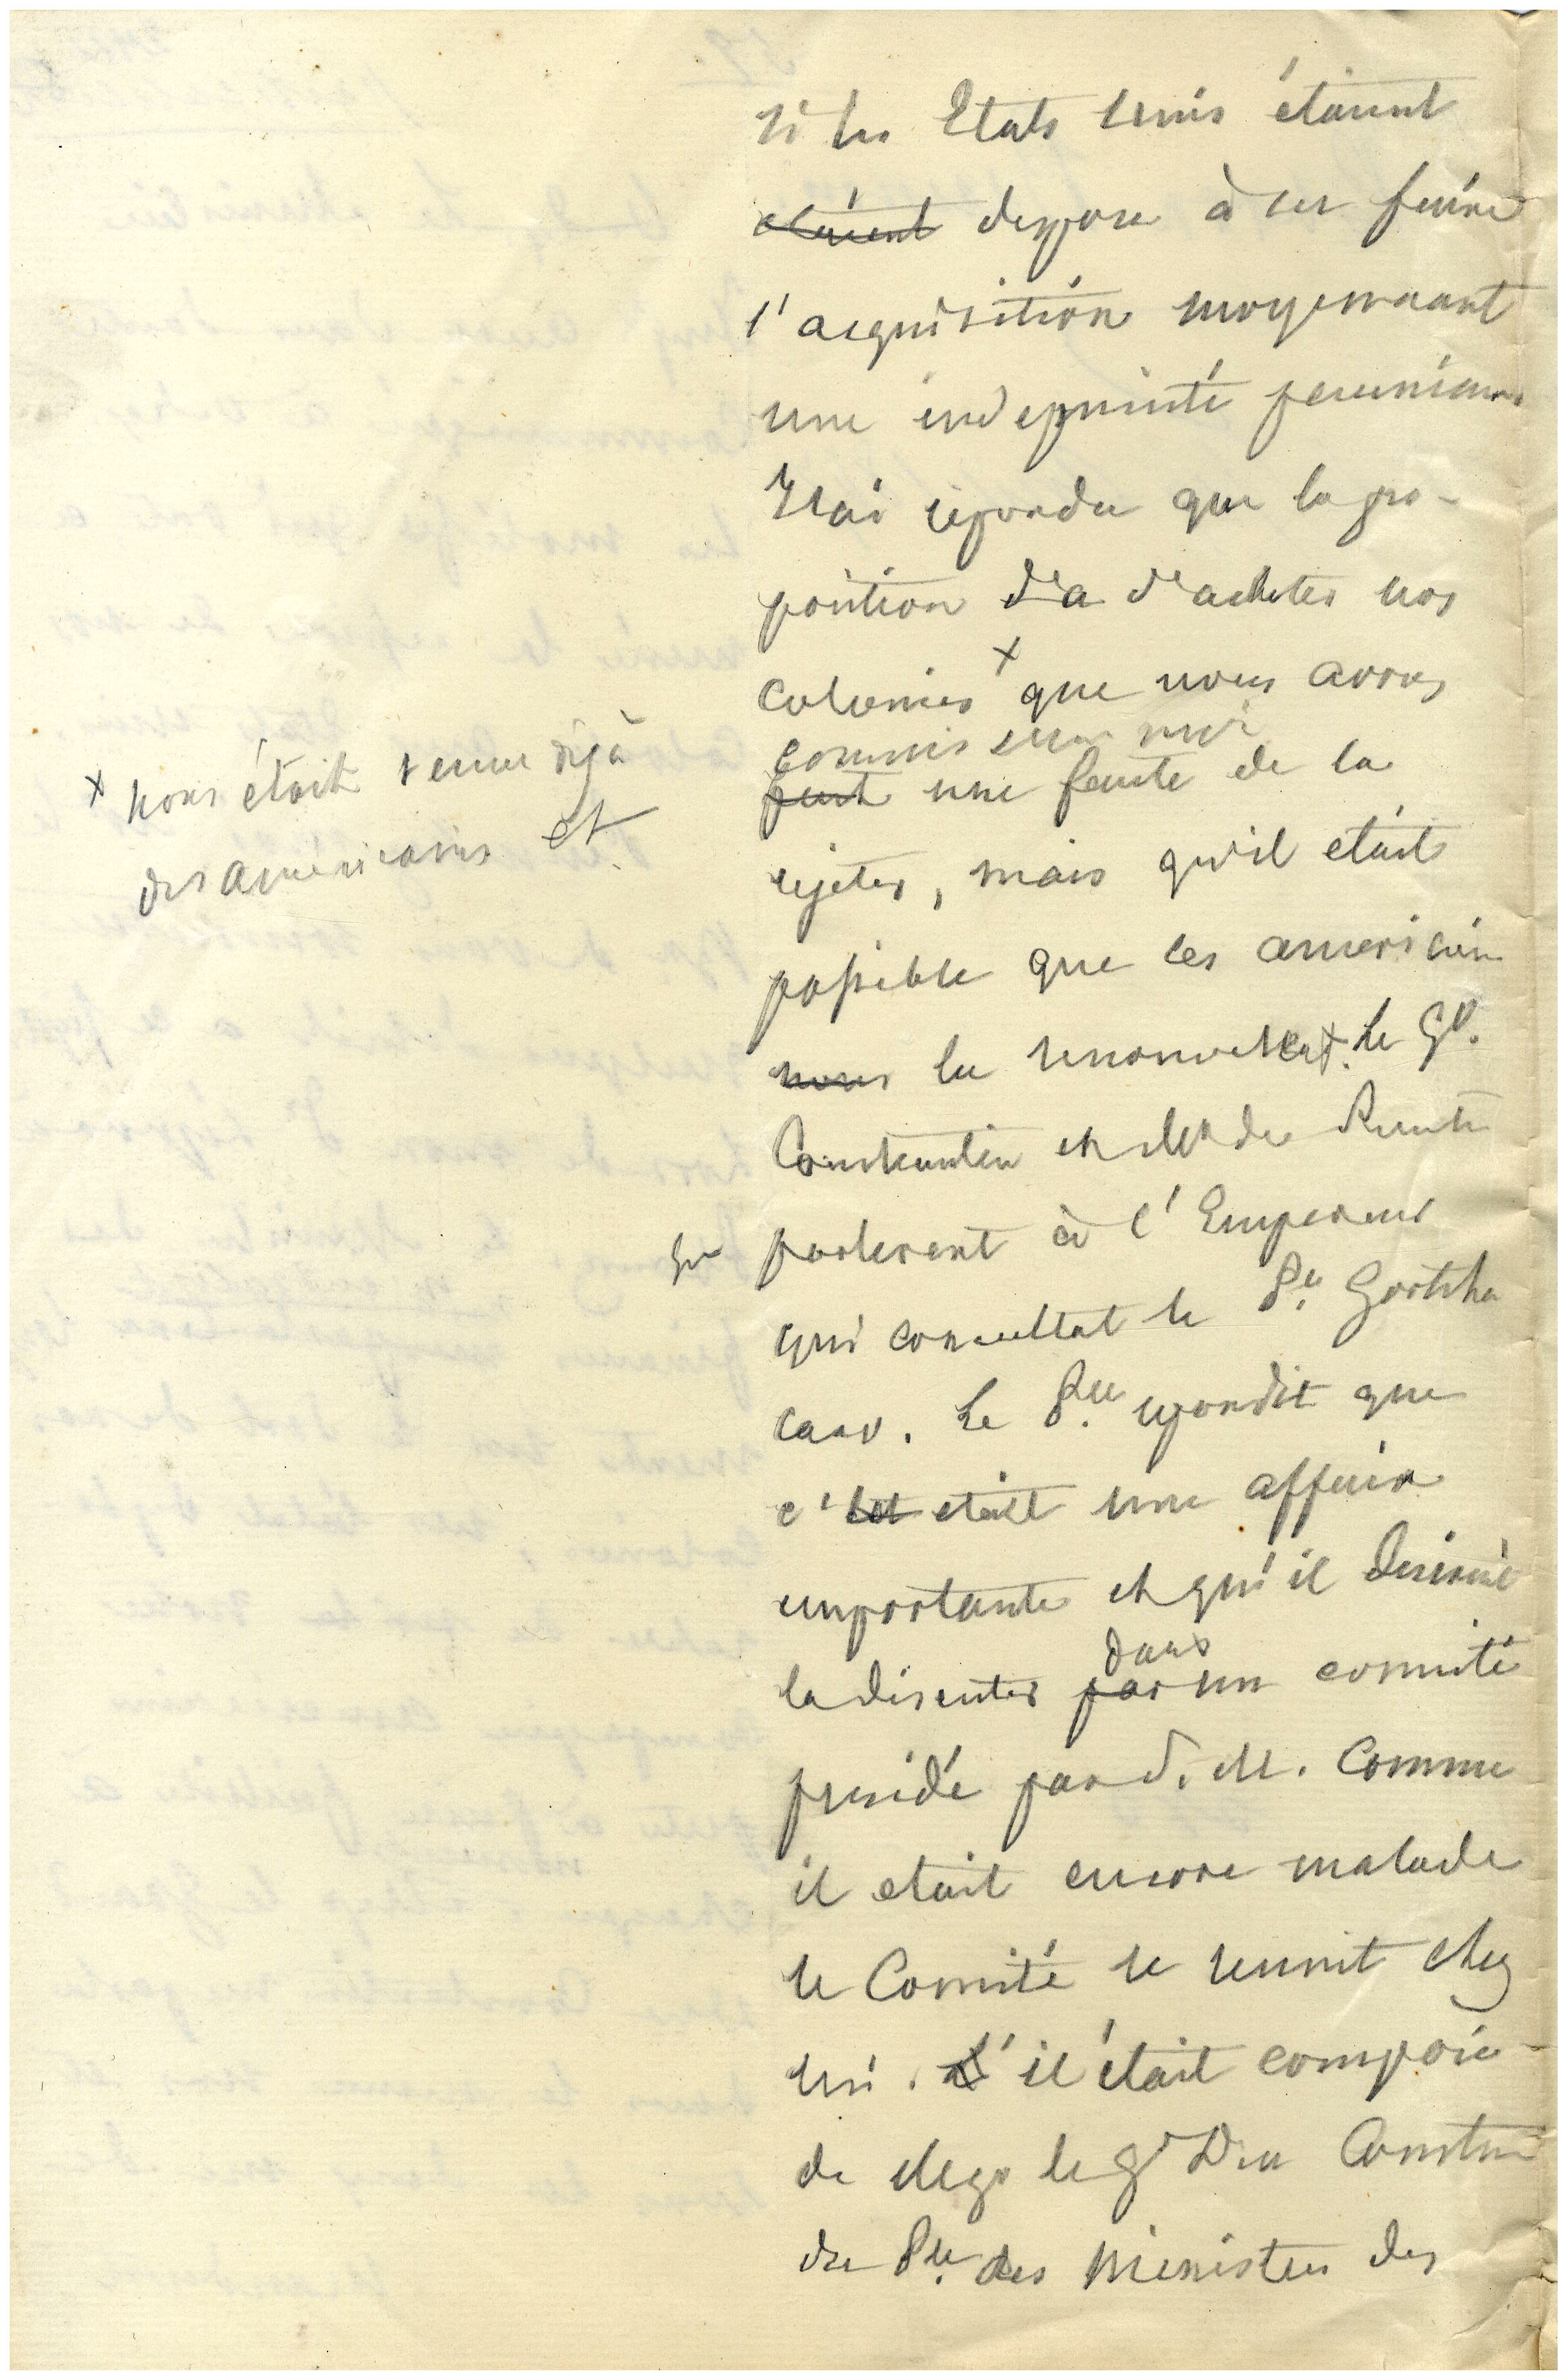 si les Etats Unis étaient
étaient dispose à en faire
l'acquisition moyennant
une indemnité pecuniaire
J'lai répondu que la pro-
position d'a d'acheter nos
colonies x que nous avons
commis
fait une faute de la
rejeter, mais qu'il etait
possible que les americain
nous la renouvelent. Le Gd.
Constantin et Mr de Reutern
x nous était venue déjà
des américains et
parlerent à l'Empereur
qui consultat le Pce Gortcha
cow. Le Pce repondit que
c'est etait une affaire
importante et qu'il desirait
dans
la discuter par un comité
presidé par S. M. Comme
il etait encore malade
le Comité se reunit chez
lui. L'il était composé
de Mgr le Gd Duc Constan
du Pce des Ministres des